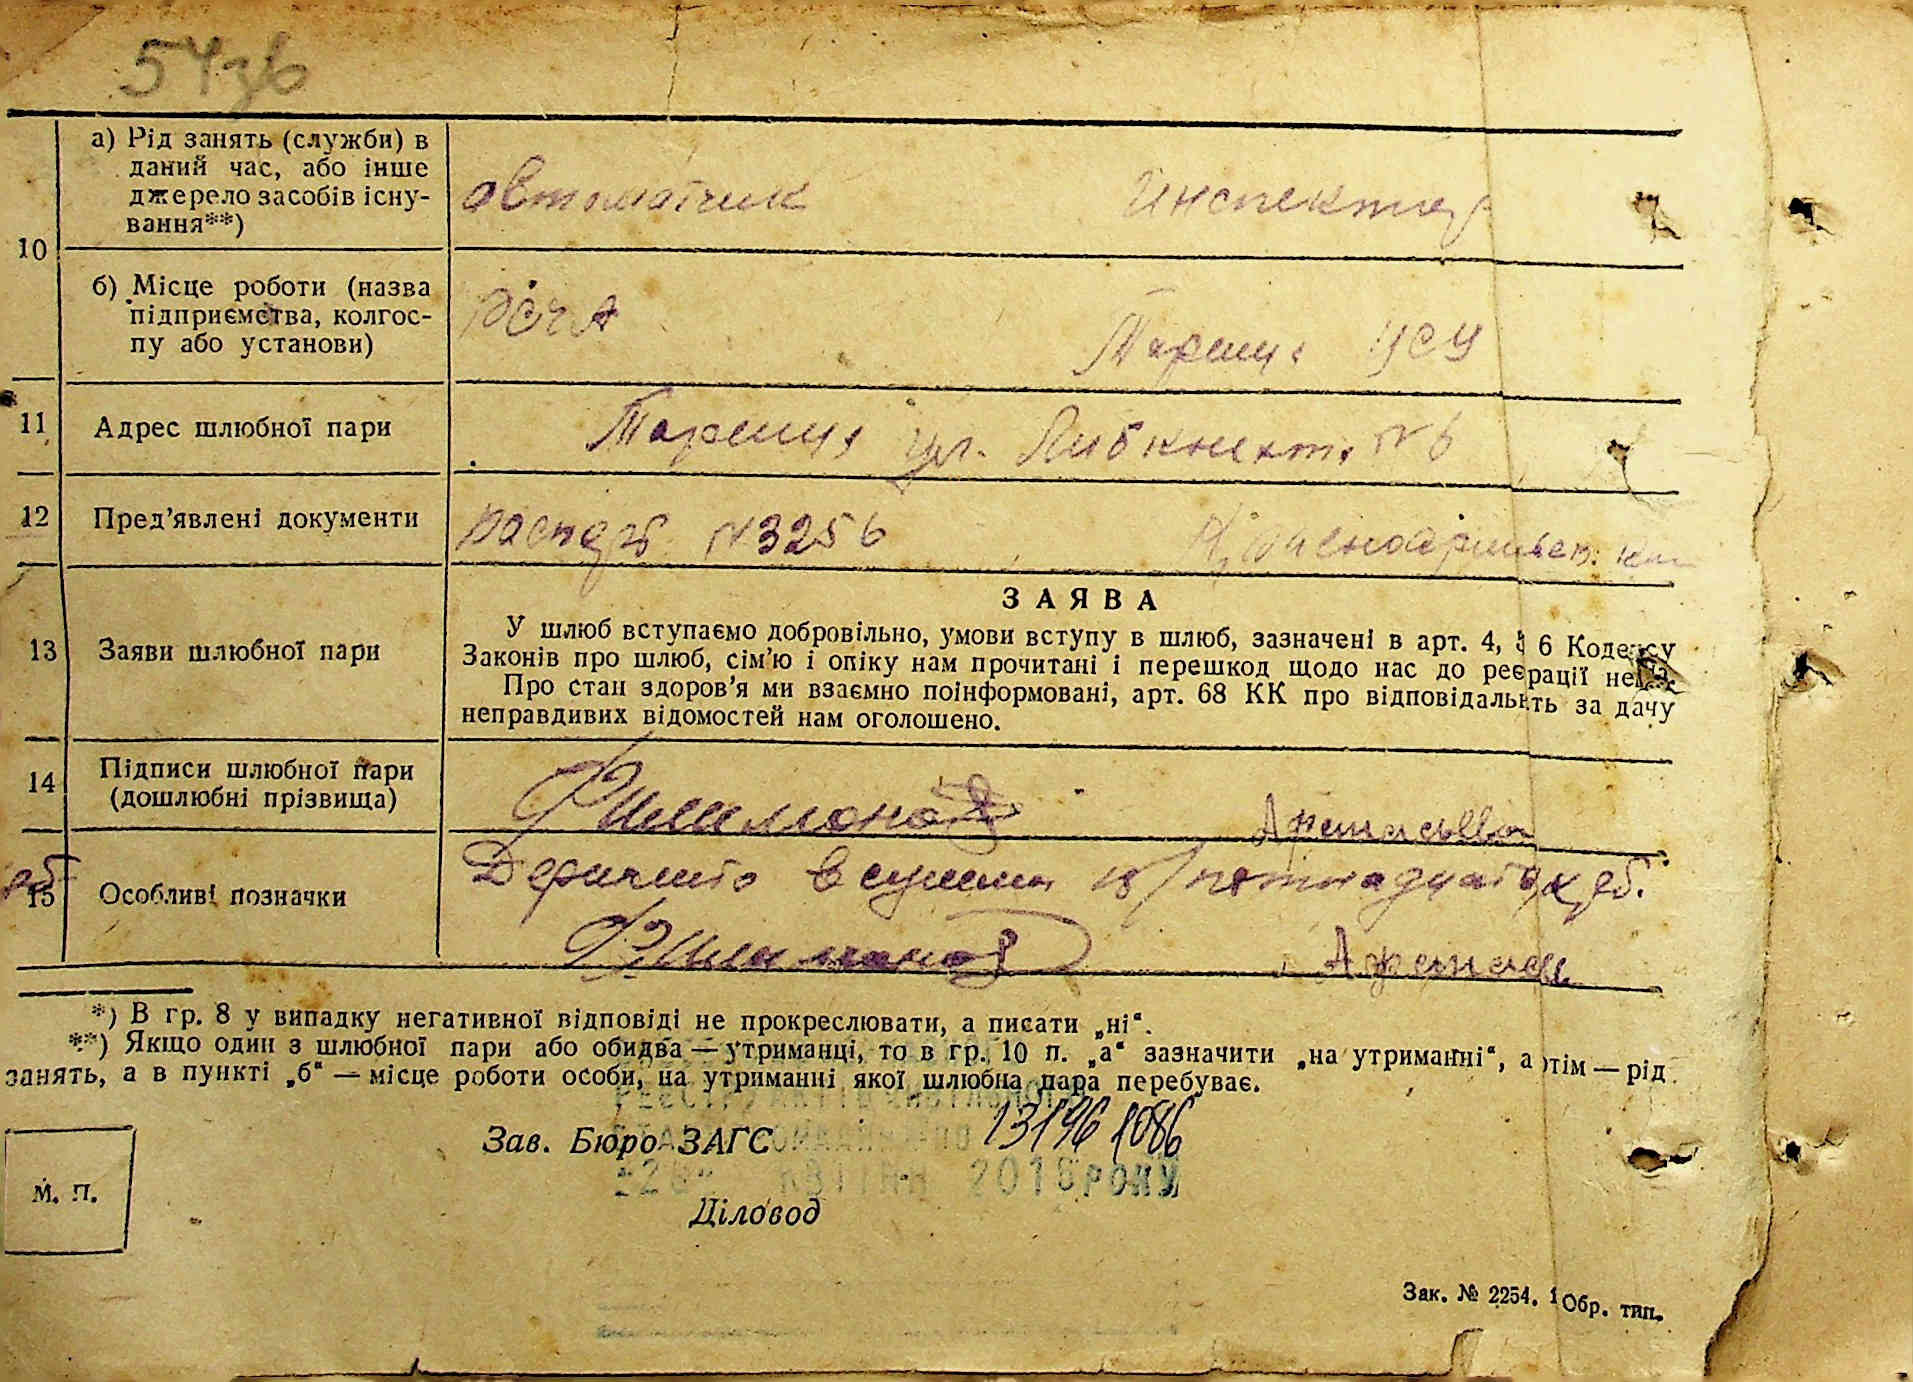 54зв
а) Рід занять (служби) в
даний час, або інше
джерело засобів існу-
вання**)
автоматчик
инспектор
10
б) Місце роботи (назва
підприємства, колгос-
пу або установи)
РСЧА
Тараща ЦСУ
11
Адрес шлюбної пари
Тараща ул. Либкнехта №6
12
Пред'явлені документи
паспорт №3256
13
Заяви шлюбної пари
ЗАЯВА
У шлюб вступаємо добровільно, умови вступу в шлюб, зазначені в арт. 4, 6 Кодексу
Законів про шлюб, сім'ю і опіку нам прочитані і перешкод щодо нас до реєрації нема.
Про стан здоров'я ми взаємно поінформовані, арт. 68 КК про відповідальність за дачу
неправдивих відомостей нам оголошено.
14
Підписи шлюбної пари
(дошлюбні прізвища)
Филимонов
15
Особливі позначки
в сумме 15/пятнадцать руб.
Филимонов
*) В гр. 8 у випадку негативної відповіді не прокреслювати, а писати „ні“.
**) Якщо один з шлюбної пари або обидва — утриманці, то в гр. 10 п. „а“ зазначити „на утриманні“, а тім — рід
занять, а в пункті „б“ — місце роботи особи, на утриманні якої шлюбна пара перебуває.
Зав. Бюро ЗАГС
13196 1086
2018 РОКУ
М. П.
Діловод
Зак. № 2254. 1 Обр. тип.